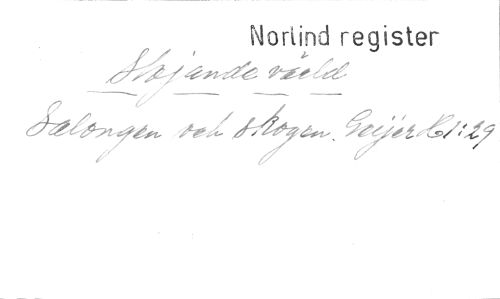 Norlind register
Stojande värld
Salongen och skogen. Geijer H1:29